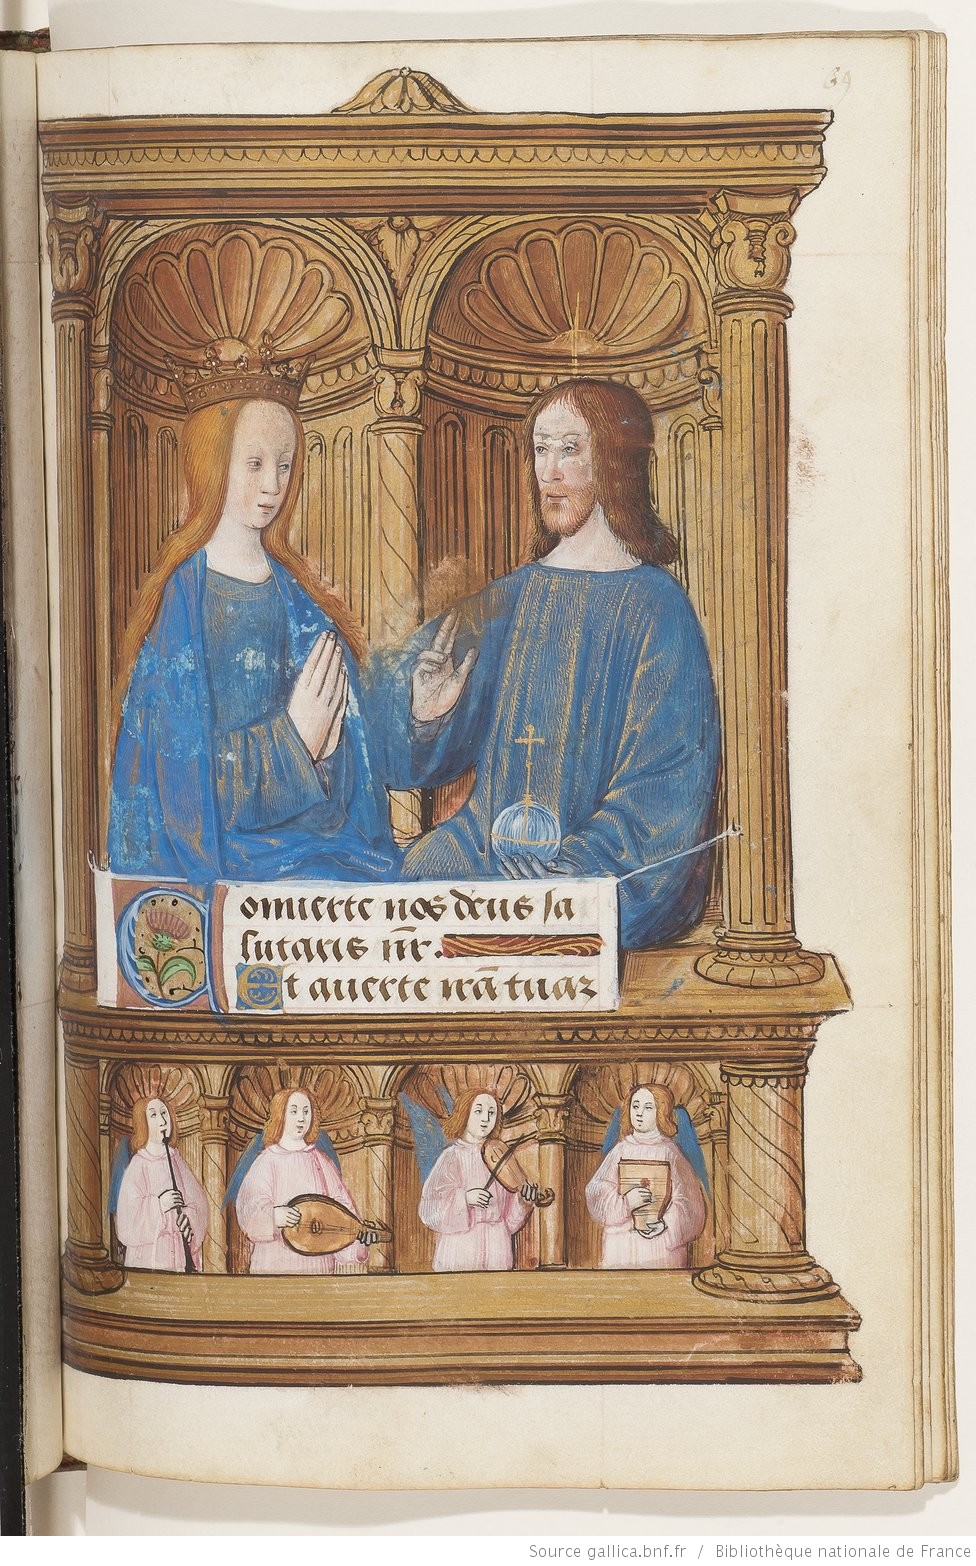 69
Conuerte nos deus sa
lutaris nr̄.
Et auerte irā tuaꝫ
Source gallica.bnf.fr / Bibliothèque nationale de France